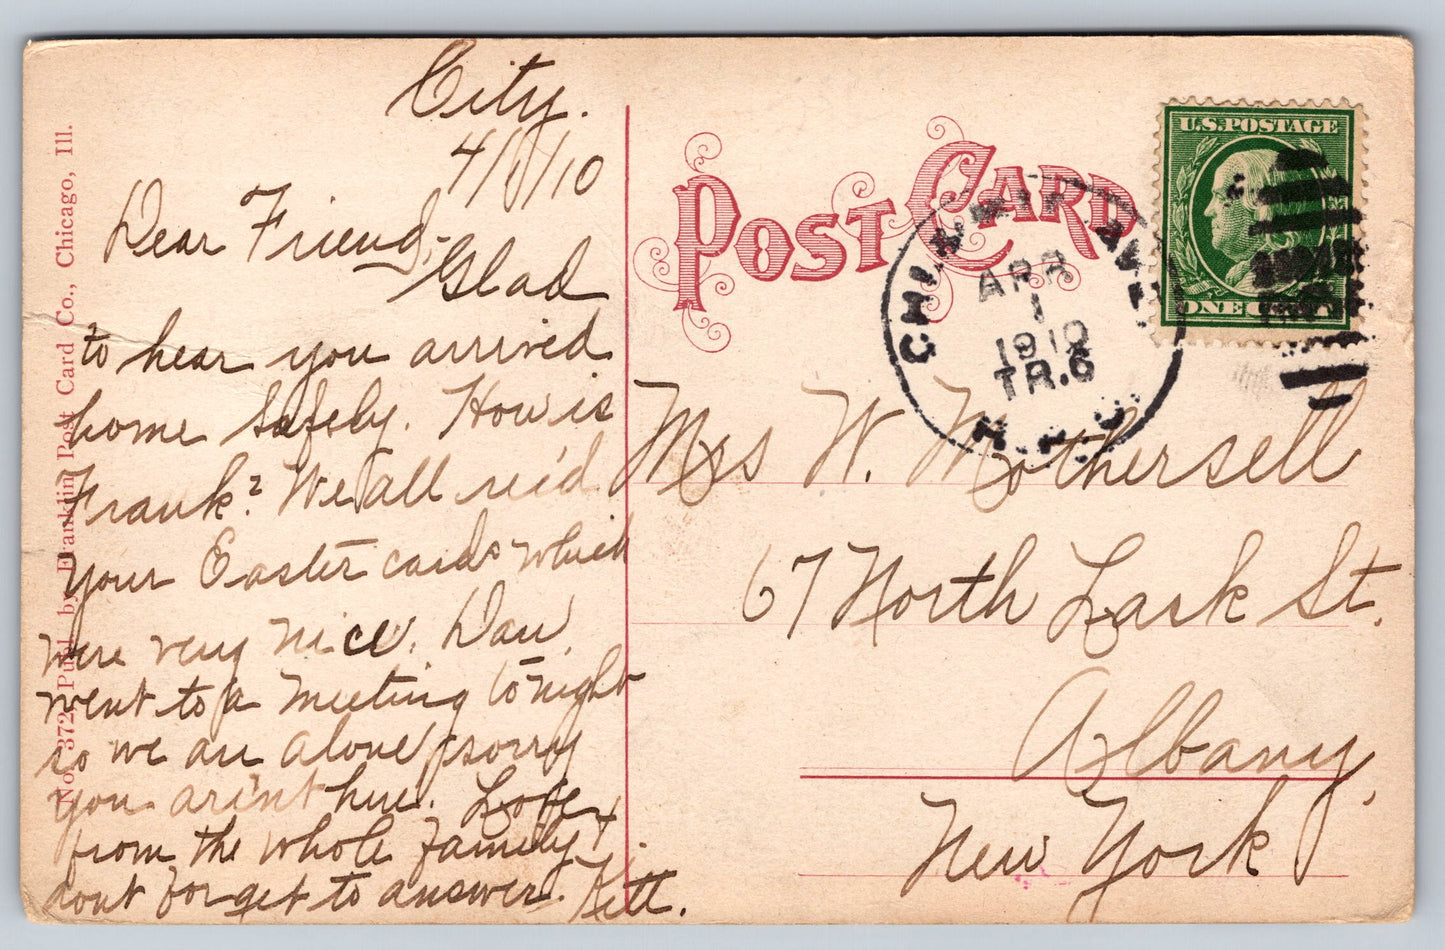 City.
4/1/10
Dear Friend;-
Glad
to hear you arrived
home safely. How is
Frank? We all rec'd
your Easter cards which
were very nice. Dan
went to a meeting to night
so we are alone sorry
you are'nt here. Love
from the whole family +
dont forget to answer. Kitt.
No. 372, Publ. by Franklin Post Card Co., Chicago, Ill.
POST CARD
U.S.POSTAGE
ONE CENT
APR
1
1910
TR.6
Mrs W. Mothersell
67 North Lark St.
Albany,
New York